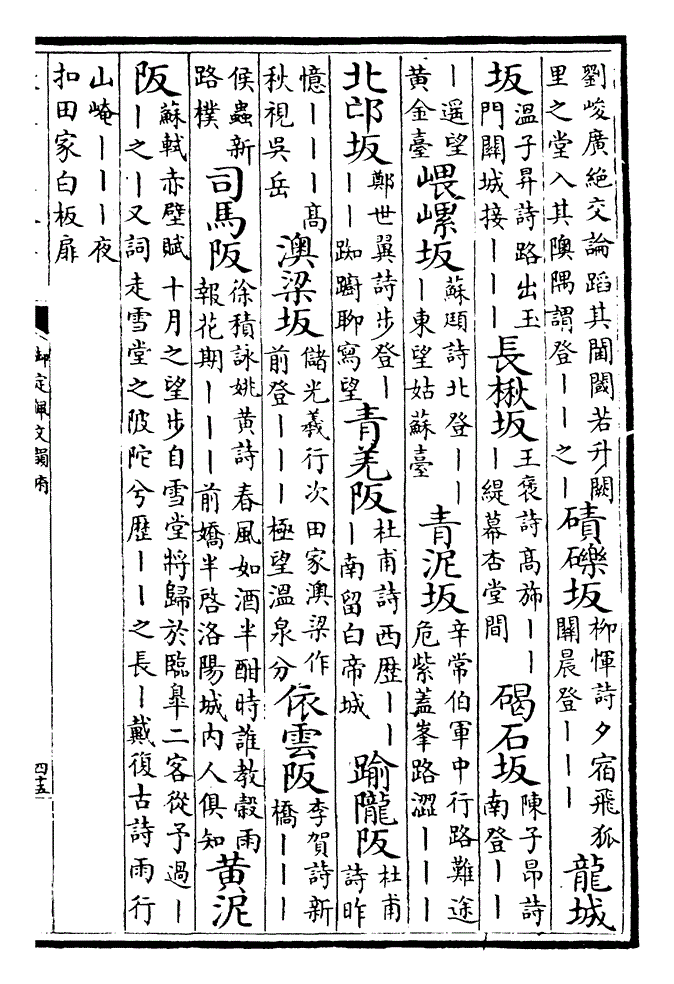 劉峻廣絶交論蹈其閫閾若升闕
里之堂入其隩隅謂登丨丨之丨
磧礫坂
柳惲詩夕宿飛狐
關晨登丨丨丨
龍城
坂
溫子昇詩路出玉
門關城接丨丨丨
長楸坂
王褒詩髙斾丨丨
丨緹幕杏堂間
碣石坂
陳子昂詩
南登丨丨
丨遥望
黄金臺
㟪㟺坂
蘇頲詩北登丨丨
丨東望姑蘇臺
青泥坂
辛常伯軍中行路難途
危紫蓋峯路澀丨丨丨
北邙坂
鄭世翼詩步登丨
丨丨踟躕聊寫望
青羌阪
杜甫詩西歴丨丨
丨南留白帝城
踰隴阪
杜甫
詩昨
憶丨丨丨髙
秋視吳岳
澳梁坂
儲光羲行次田家澳梁作
前登丨丨丨極望溫泉分
依雲阪
李賀詩新
橋丨丨丨
侯蟲新
路樸
司馬阪
徐積詠姚黄詩春風如酒半酣時誰教穀雨
報花期丨丨丨前嬌半啓洛陽城内人俱知
黄泥
阪
蘇軾赤壁賦十月之望步自雪堂將歸於臨臯二客從予過丨
丨之丨又詞走雪堂之陂陀兮歴丨丨之長丨戴復古詩雨行
山崦丨丨丨夜
扣田家白板扉
御定佩文韻府
四十五